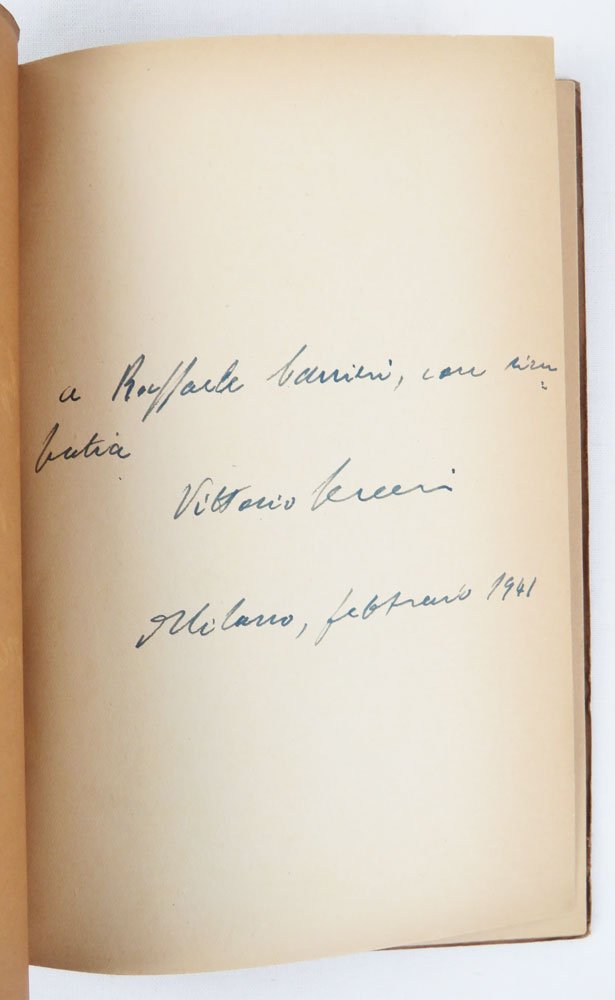 a Raffaele Carrieri, con sim=
patia
Vittorio Sereni
Milano, febbraio 1941